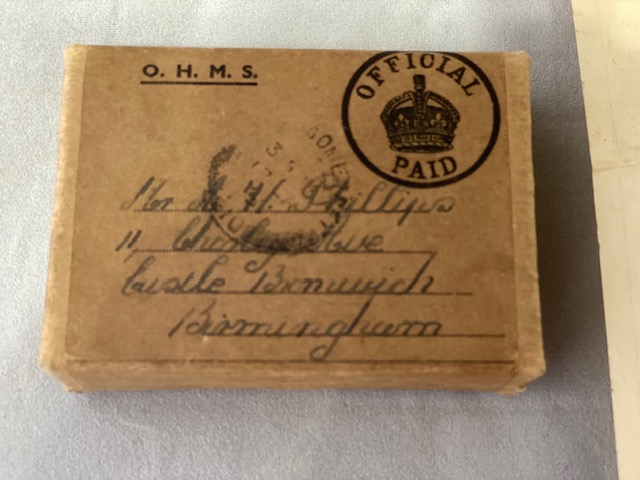 O. H. M. S.
OFFICIAL
PAID
Mr H. Phillips
11, Ave
Castle Bromwich
Birmingham